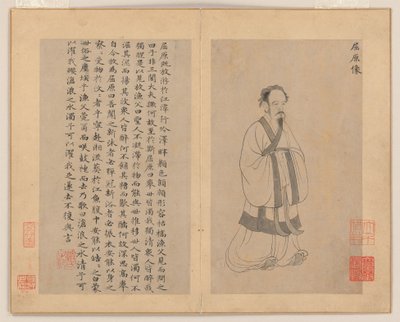 屈原像
屈原既放游於江潭行吟澤畔顏色顦顇形容枯槁漁父見而問之
曰子非三閭大夫歟何故至於斯屈原曰舉世皆濁我獨清眾人皆醉我
獨醒是以見放漁父曰聖人不凝滯於物而能與世推移世人皆濁何不
淈其泥而揚其波眾人皆醉何不餔其糟而歠其醨何故深思高舉
自令放為屈原曰吾聞之新沐者必彈冠新浴者必振衣安能以身之
察々受物之汶々者乎寧赴湘流葬於江魚腹中安能以皓々之白蒙
世俗之塵埃乎漁父莞爾而笑鼓枻而去乃歌曰滄浪之水清兮可
以濯我纓滄浪之水濁兮可以濯我足遂去不復與言